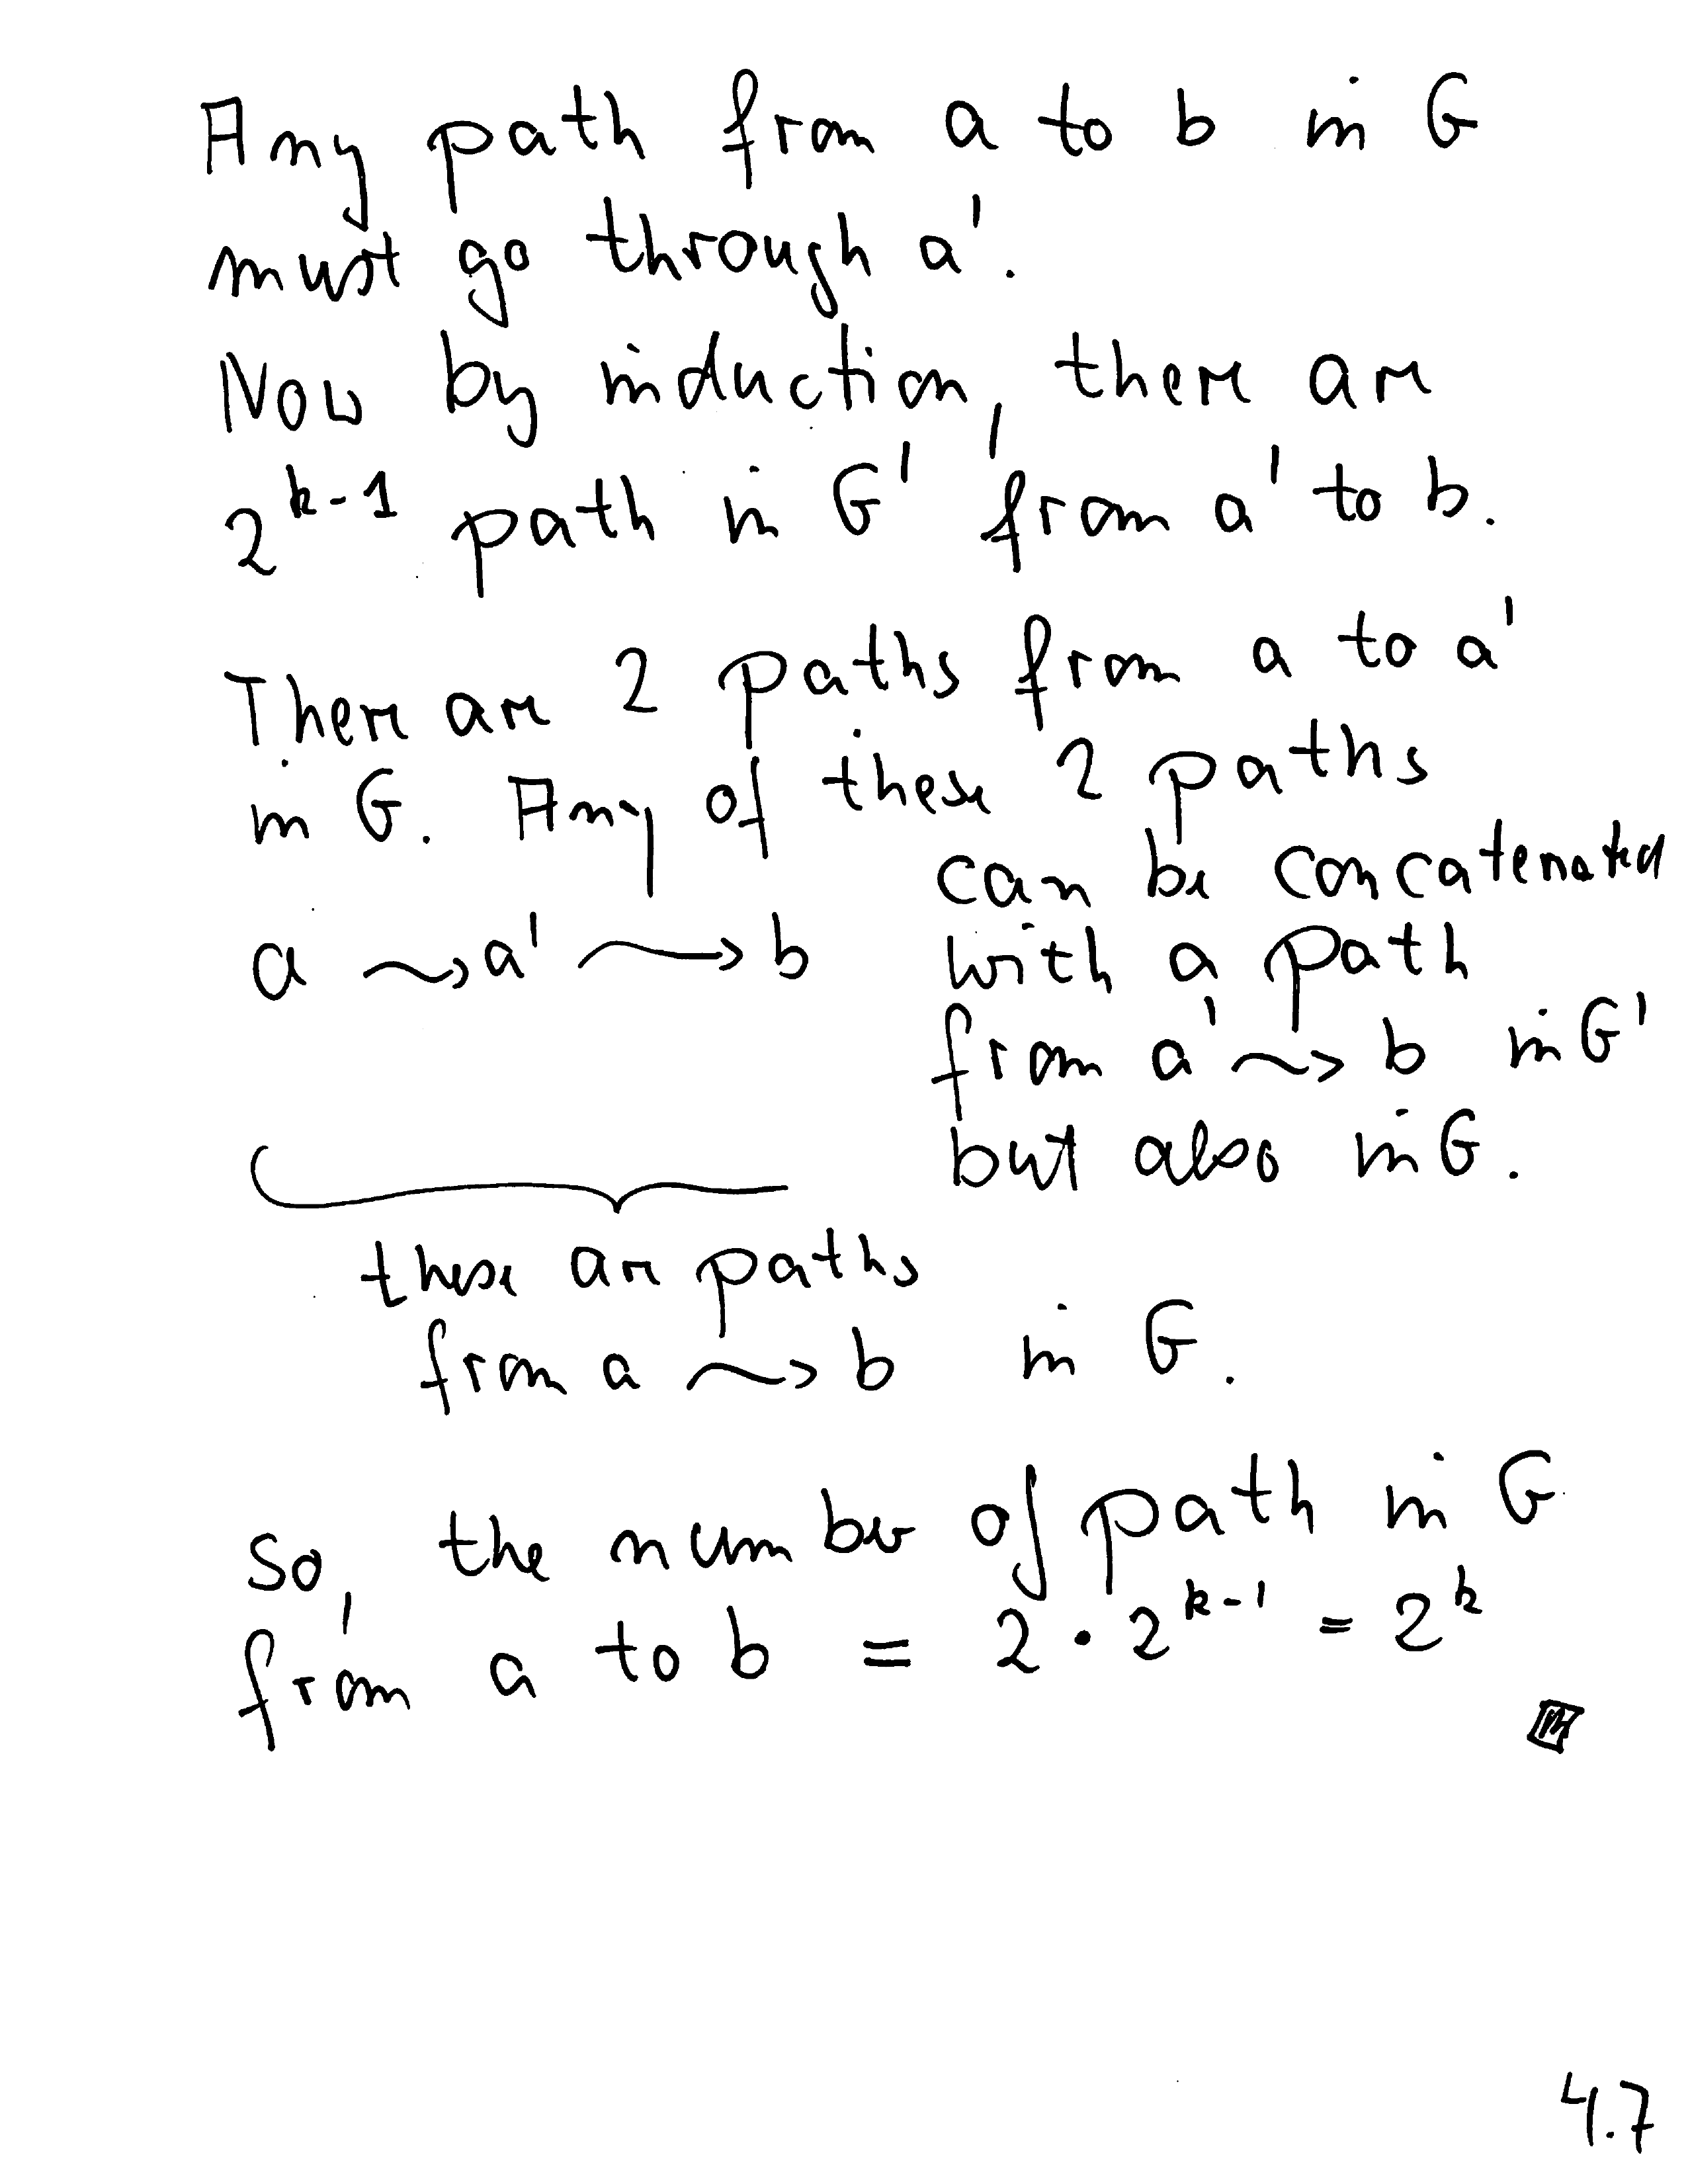 Any path from a to b in G
must go through a'.
Now by induction, there are
2^{k-1} path in G' from a' to b.
There are 2 paths from a to a'
in G. Any of these 2 paths
can be concatenated
a ⇝ a' ⇝ b with a path
from a' ⇝ b in G'
but also in G.
these are paths
from a ⇝ b in G.
So, the number of path in G
from a to b = 2 · 2^{k-1} = 2^k
4.7